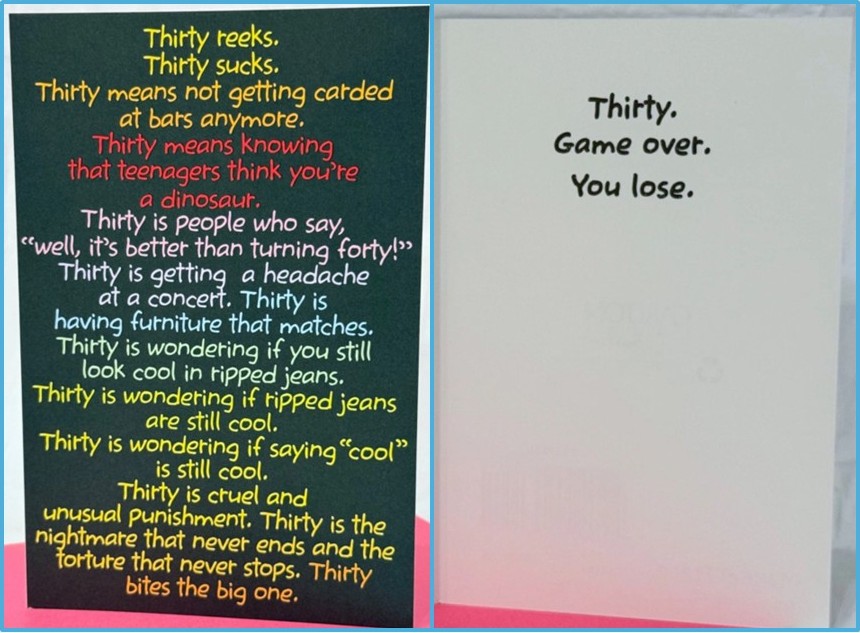 Thirty reeks.
Thirty sucks.
Thirty means not getting carded
at bars anymore.
Thirty means knowing
that teenagers think you're
a dinosaur.
Thirty is people who say,
“well, it's better than turning forty!”
Thirty is getting a headache
at a concert. Thirty is
having furniture that matches.
Thirty is wondering if you still
look cool in ripped jeans.
Thirty is wondering if ripped jeans
are still cool.
Thirty is wondering if saying “cool”
is still cool.
Thirty is cruel and
unusual punishment. Thirty is the
nightmare that never ends and the
torture that never stops. Thirty
bites the big one.
Thirty.
Game over.
You lose.